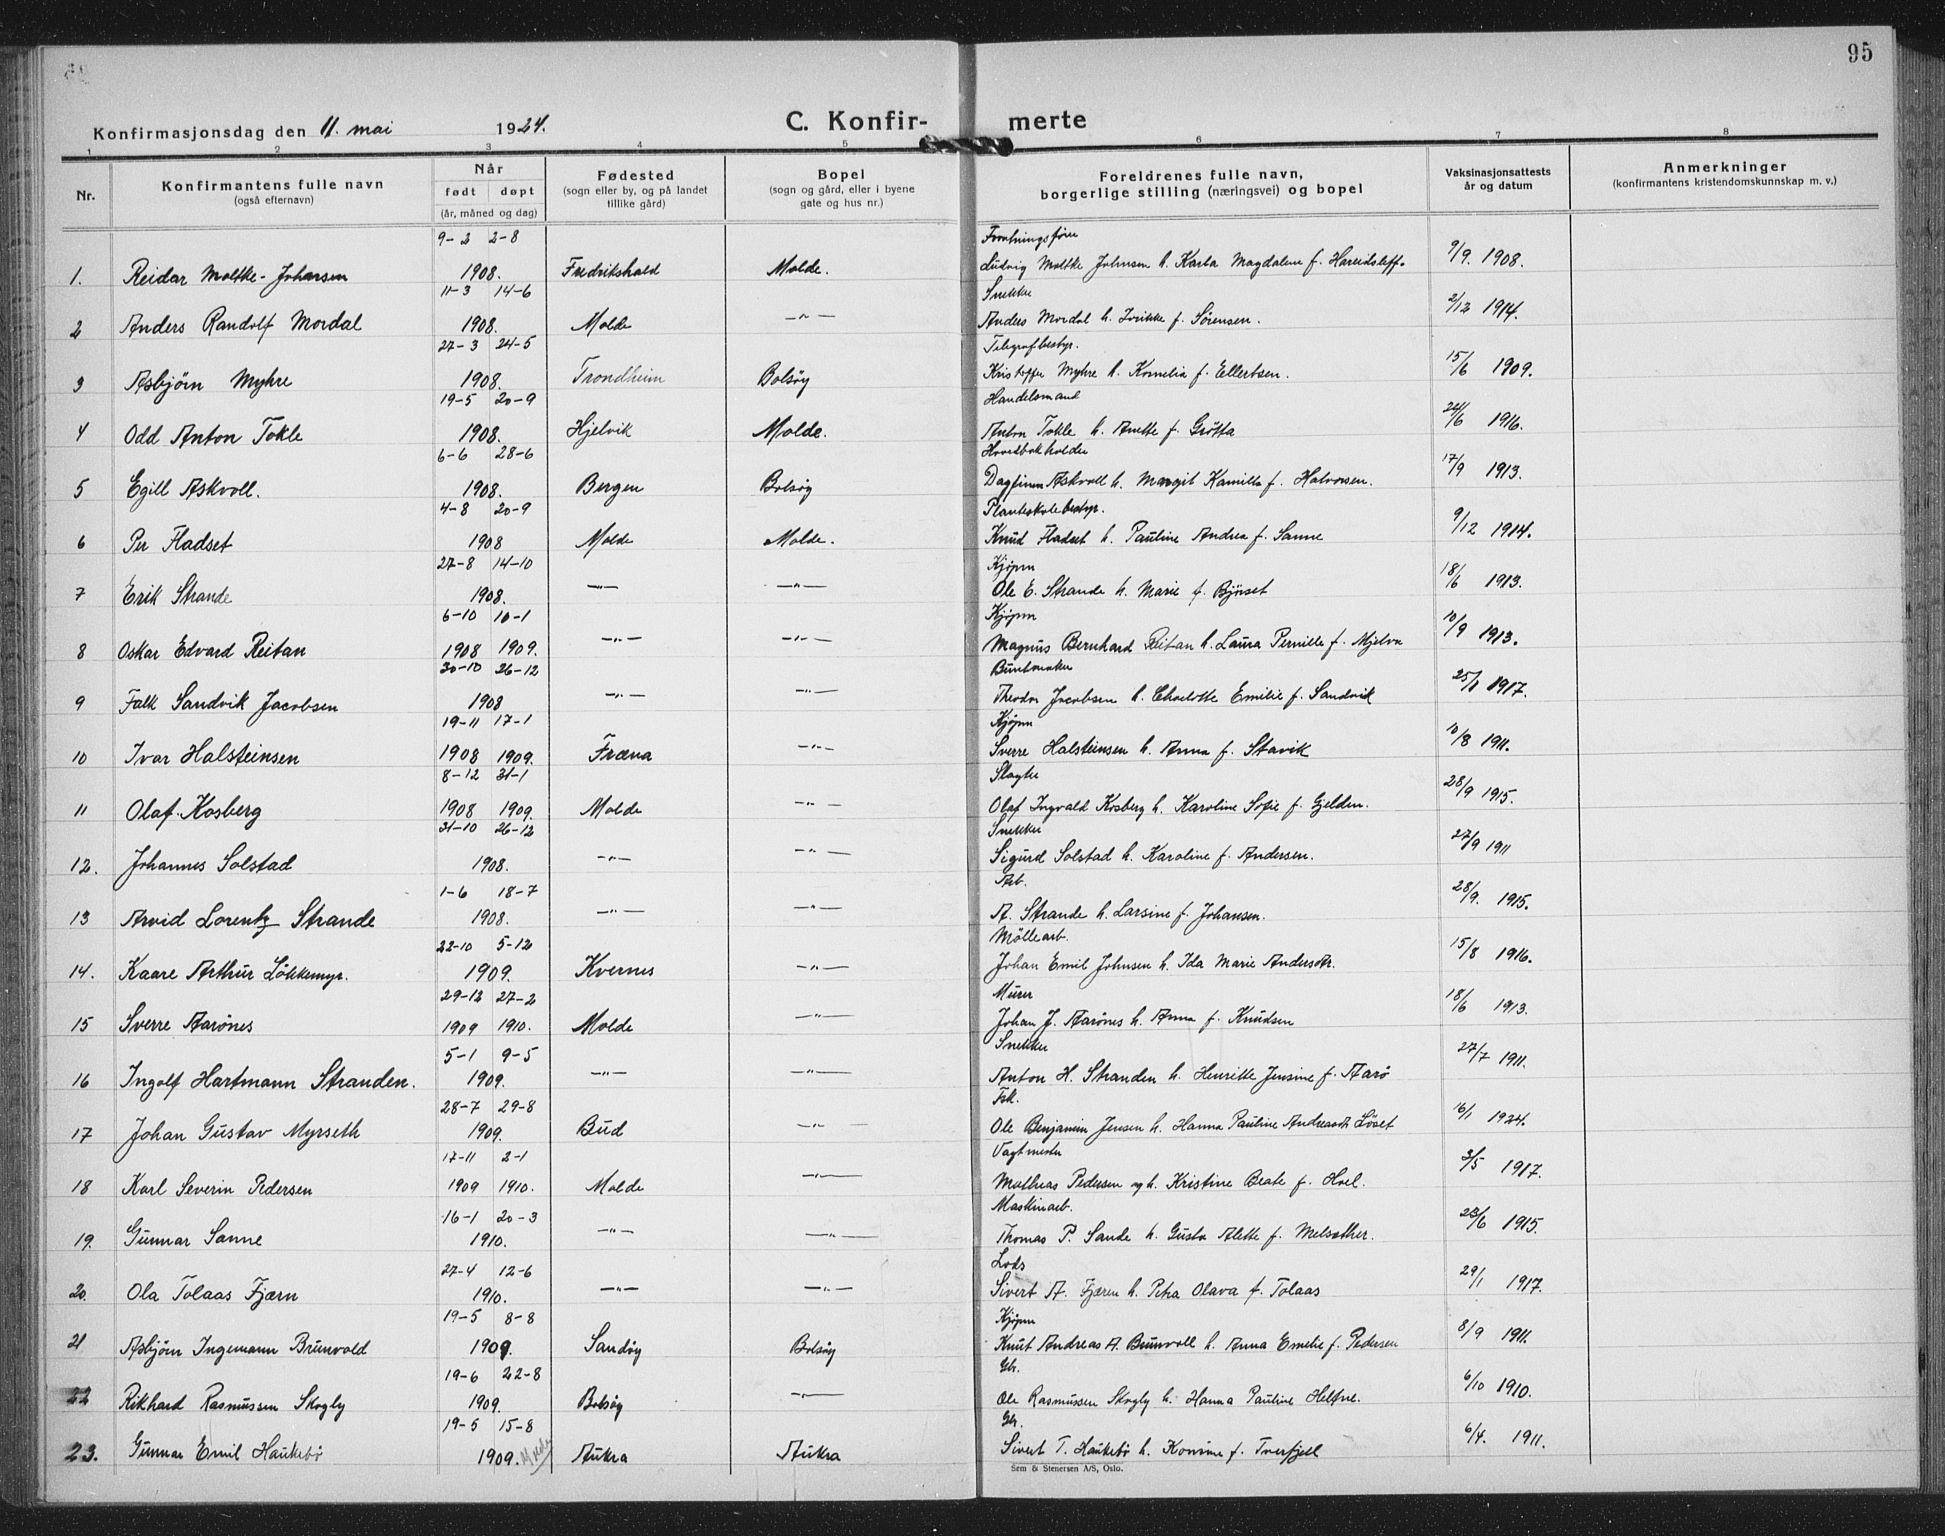 95
Konfirmasjonsdag den 11. mai 1924. C. Konfir- merte
1 2 3 4 5 6 7 8
Nr. Konfirmantens fulle navn (også efternavn) Når født døpt (år, måned og dag) Fødested (sogn eller by, og på landet tillike gård) Bopel (sogn og gård, eller i byene gate og hus nr.) Foreldrenes fulle navn, borgerlige stilling (næringsvei) og bopel Vaksinasjonsattests år og datum Anmerkninger (konfirmantens kristendomskunnskap m. v.)
9-2 2-8 Forretningsfører
1. Reidar Moltke-Johansen 1908. Fredrikshald Molde. Ludvig Moltke Johnsen h. Karla Magdalene f. 9/9. 1908.
11-3 14-6 Snekker
2 Anders Randolf Mordal 1908. Molde -"- Anders Mordal h. f. Sørensen. 2/12 1914.
27-3 24-5 Telegrafbestyr.
3 Asbjörn Myhre 1908. Trondheim Bolsöy Kristoffer Myhre h. Kornelia f. Ellertsen. 15/6 1909.
19-5 20-9 Handelsmand
4 Odd Anton Tokle 1908. Hjelvik Molde. Anton Tokle h. Anette f. Grötta 24/6 1916.
6-6 28-6 Hovedbokholder
5 Egill Askvoll. 1908. Bergen Bolsöy Dagfinn Askvoll h. Margit Kamilla f. Halvorsen. 17/9 1913.
4-8 20-9 Planteskolebestyr.
6 Per Fladset 1908 Molde Molde. Knud Fladset h. Pauline Andrea f. Sanne 9/12 1914.
27-8 14-10 Kjøpm
7 Erik Strande 1908. -"- -"- Ole E. Strande h. Marie f. Björset 18/6 1913.
6-10 10-1 Kjøpm
8 Oskar Edvard Reitan 1908 1909. -"- -"- Magnus Bernhard Reitan h. Laura Pernille f. Mjelva 10/9 1913.
30-10 26-12 Buntmaker
9 Falk Sandvik Jacobsen 1908 -"- -"- Theodor Jacobsen h. Charlotte Emilie f. Sandvik 25/1 1917.
19-11 17-1 Kjøpm
10 Ivar Halsteinsen 1908 1909. Fræna -"- Sverre Halsteinsen h. Anna f. Stavik 10/8 1911.
8-12 31-1 Slagter
11 Olaf Kosberg 1908 1909. Molde -"- Olaf Ingvald Kosberg h. Karoline Sofie f. Gjelden. 28/9 1915.
31-10 26-12 Snekker
12. Johannes Solstad 1908. -"- -"- Sigurd Solstad h. Karoline f. Andersen. 27/9 1911
1-6 18-7 Arb.
13 Arvid Lorentz Strande 1908. -"- -"- A. Strande h. Larsine f. Johansen. 28/9. 1915.
22-10 5-12 Möllearb.
14. Kaare Arthur Lökkemyr. 1909. Kvernes -"- Johan Emil Johnsen h. Ida Marie Andersdtr. 15/8 1916.
29-12 27-2 Murer
15 Sverre Aarönes 1909 1910. Molde -"- Johan J. Aarönes h. Anna f. Knudsen 18/6 1913.
5-1 9-5 Snekker
16 Ingolf Hartmann Stranden. 1909. -"- -"- Anton H. Stranden h. Henrikke Jensine f. Aarö 27/7 1911.
28-7 29-8 Fsk.
17 Johan Gustav Myrseth 1909. Bud -"- Ole Benjamin Jensen h. Hanna Pauline Andreasdt. Löset 16/1 1924.
17-11 2-1 Vagtmester
18 Karl Severin Pedersen 1909 1910. Molde -"- Mathias Pedersen og h. Kristine Beate f. Hoel. 3/5 1917.
16-1 20-3 Maskinarb.
19. Gunnar Sanne 1910. -"- -"- Thomas P. Sande h. Gusta Alette f. Melsæther. 23/6 1915.
27-4 12-6 Lods
20. Ola Tolaas Fjærn 1910. -"- -"- Sivert A. Fjæren h. Petra Olava f. Tolaas 29/1 1917.
19-5 8-8 Kjøpm
21 Asbjörn Ingemann Brunvold 1909. Sandöy Bolsöy Knut Andreas A. Brunvoll h. Anna Emelie f. Pedersen 8/9 1911.
19-6 22-8 Gbr.
22 Rikhard Rasmussen Skogly 1909. Bolsöy -"- Ole Rasmussen Skogly h. Hanna Pauline Helene. 6/10 1910.
19-5 15-8 Gbr.
23. Gunnar Emil Haukebö 1909. Aukra Aukra Sivert T. Haukebö h. Konsine f. Tverfjell 6/4. 1911.
Sem & Stenersen A/S, Oslo.